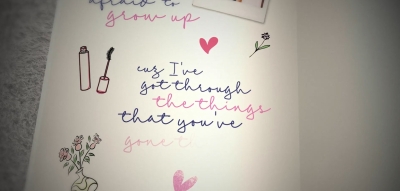 afraid to
grow up
cuz I've
got through
the things
that you've
gone t